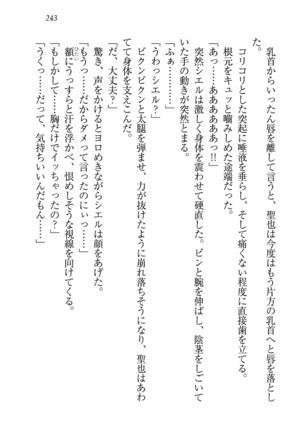 243
た。
乳首からいったん唇を離して言うと、聖也は今度はもう片方の乳首へと唇を落とし
コリコリとした突起に唾液を垂らし、そして痛くない程度に直接歯を立てる。
根元をキュッと噛みしめた途端だった。
「あっ……あああああああっ!!」
「ふぁ…………」
突然シエルは激しく身体を震わせて硬直した。ピンと腕を伸ばし、陰茎をしごいて
いた手の動きが突然とまる。
「うわっシエル!」
ビクンビクンと太腿を弾ませ、力が抜けたように崩れ落ちそうになり、聖也はあわ
てて身体を支えこんだ。
「だ、大丈夫?」
驚き、声をかけるとヨロめきながらシエルは顔をあげた。
「もうっ……だからダメって言ったのにぃっ……」
額にうっすらと汗を浮かべ、恨めしそうな視線を向けてくる。
「もしかして……胸だけでイッちゃったの?」
「うくっ……だって、気持ちいいんだもん……」